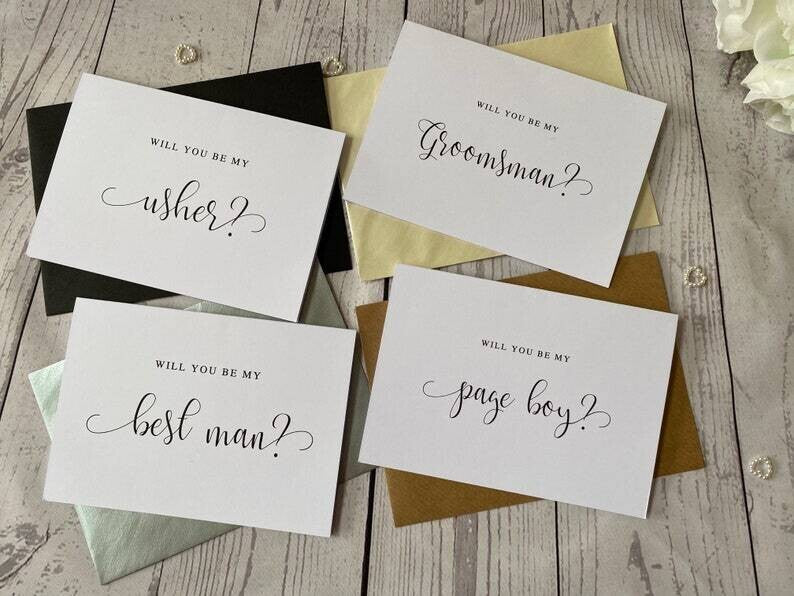 WILL YOU BE MY
usher?
WILL YOU BE MY
Groomsman?
WILL YOU BE MY
best man?
WILL YOU BE MY
page boy?